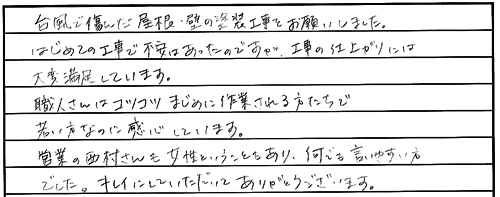 台風で傷んだ屋根・壁の塗装工事をお願いしました。
はじめての工事で不安はあったのですが、工事の仕上がりには
大変満足しています。
職人さんはコツコツまじめに作業される方たちで
若い方なのに感心しています。
営業の西村さんも女性ということもあり、何でも言いやすい方
でした。キレイにしていただいてありがとうございます。